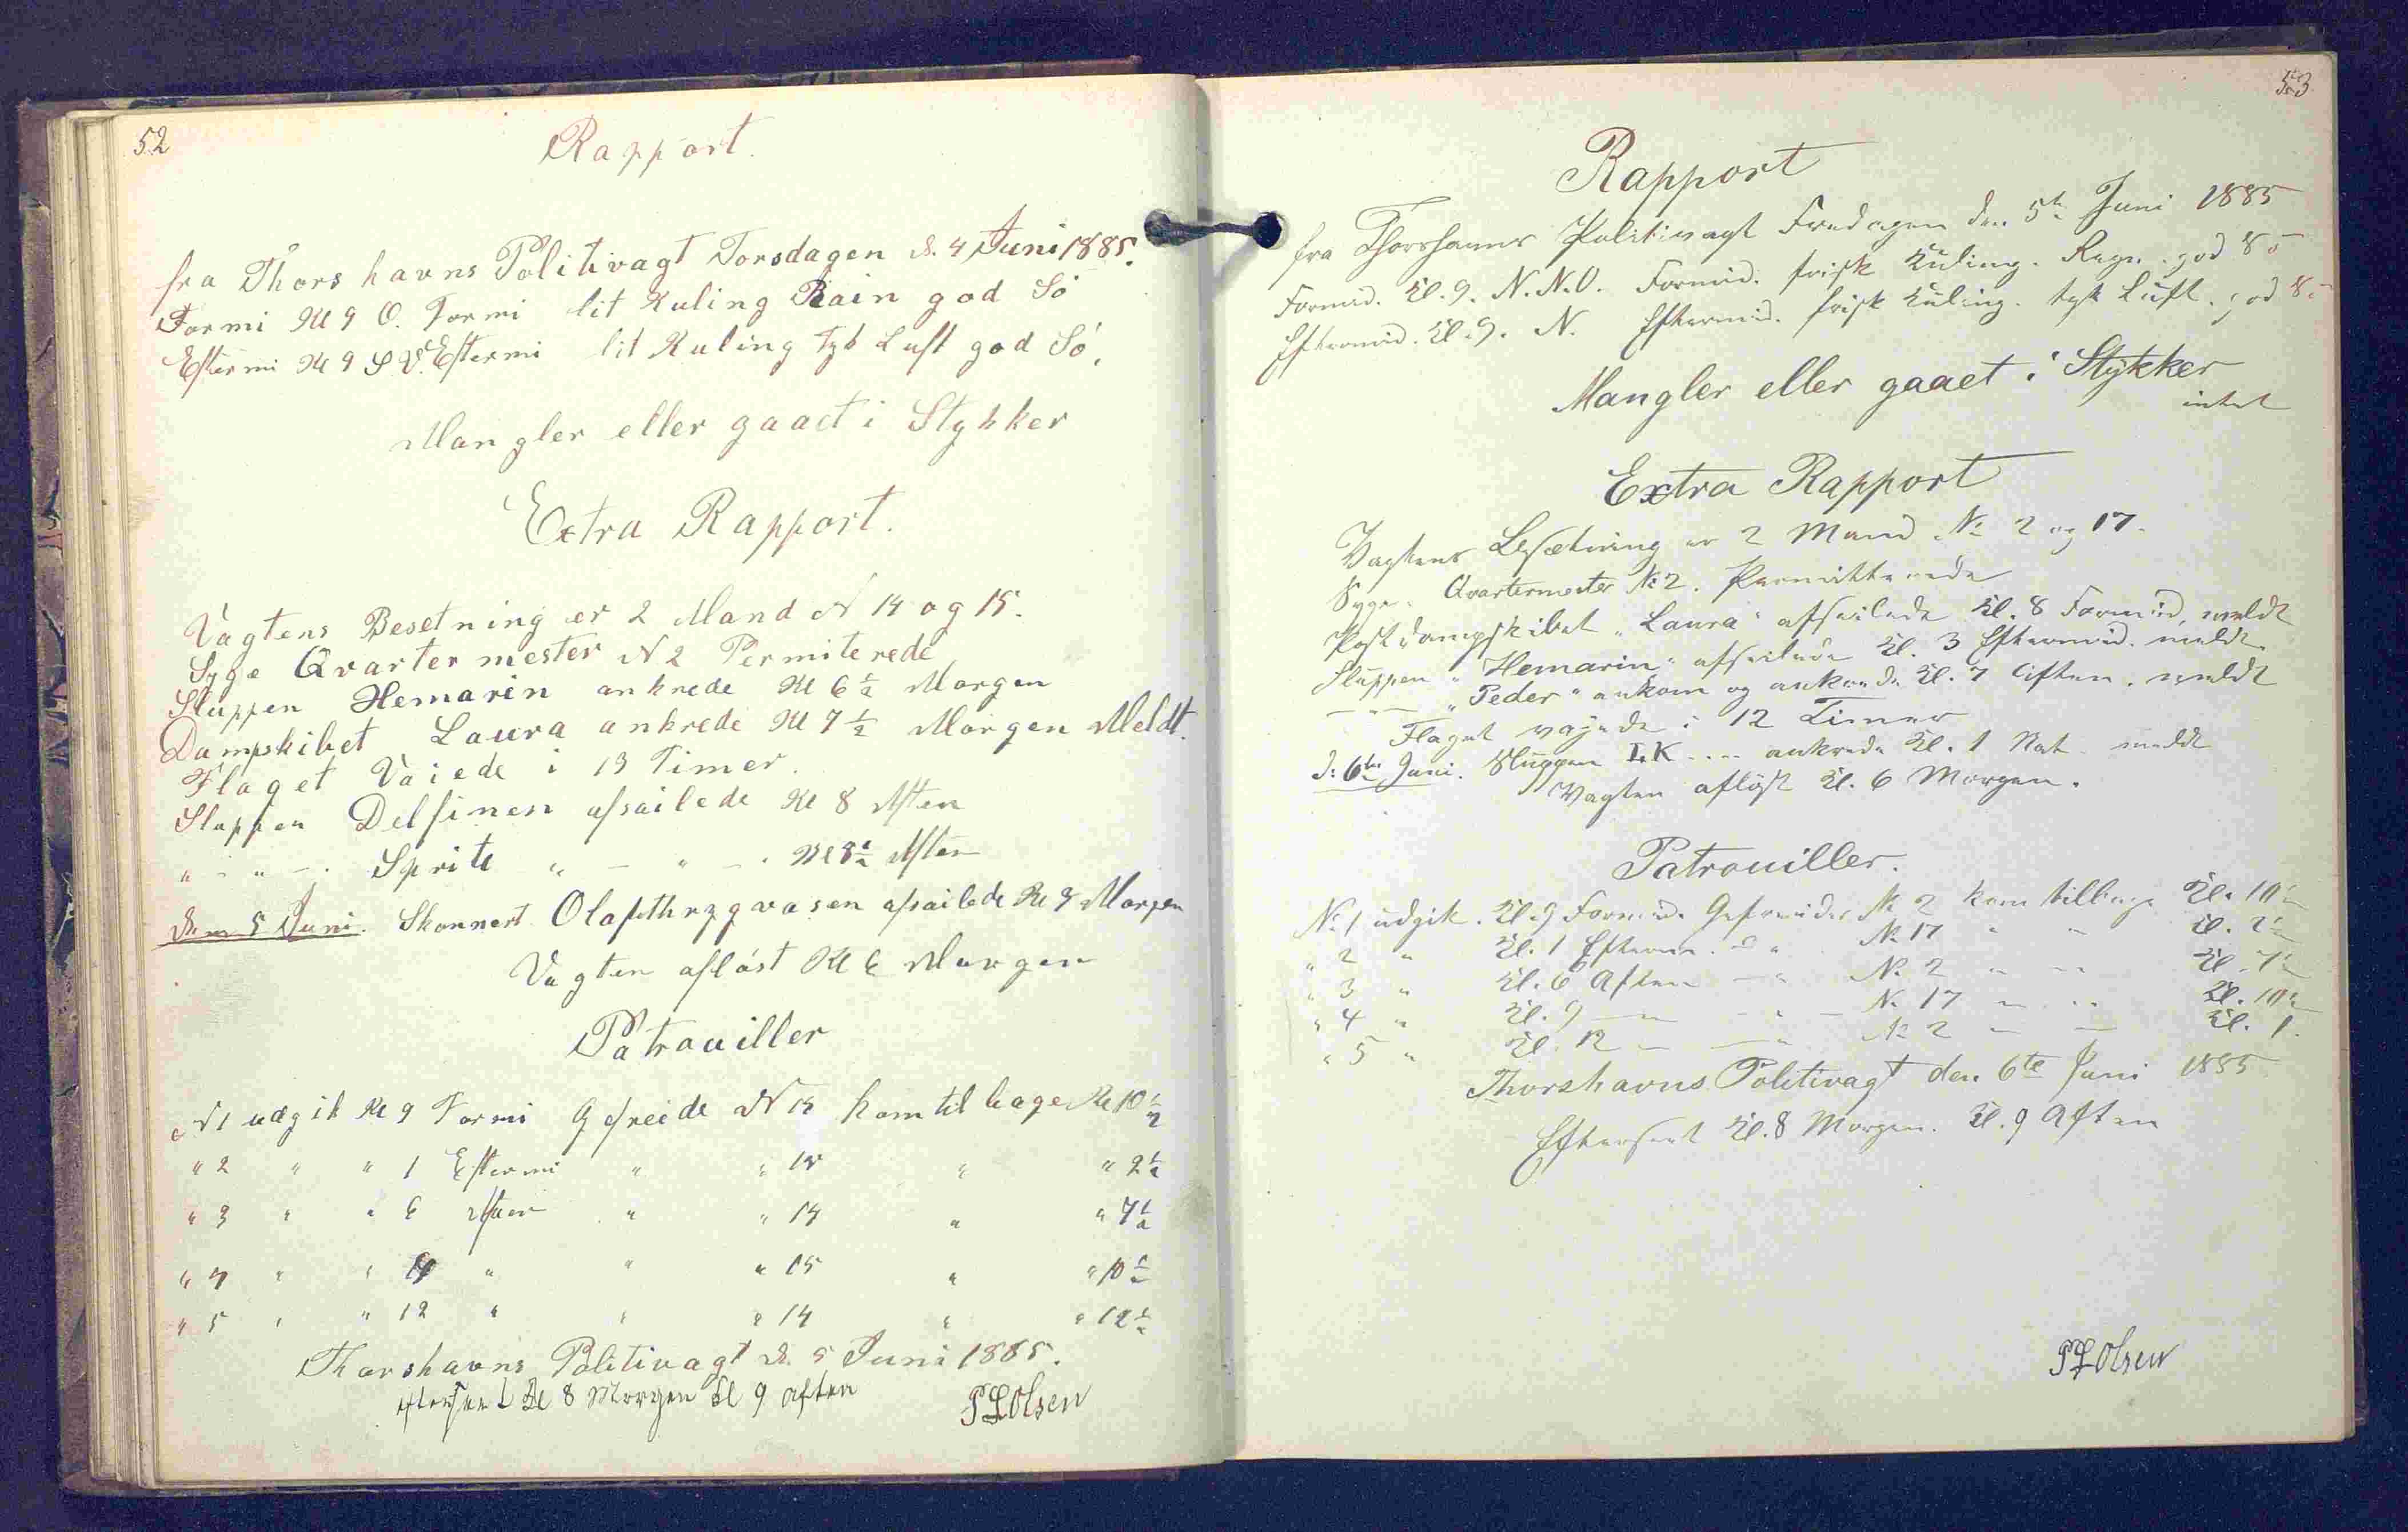 52
Rapport.
fra Thorshavns Politivagt Torsdagen d. 4 Juni 1885.
Formi Kl 9 O. Formi lit Kuling Rain god Sö
Eftermi Kl 9 S.V. Eftermi lit Kuling tyk Luft god Sö.
Mangler eller gaaet i Stykker
Extra Rapport.
Vagtens Besetning er 2 Mand N 14 og 15.
Syge Qvartermester N 2 Permiterede
Sluppen Hemarin ankrede Kl 6½ Morgen
Dampskibet Laura ankrede Kl 7½ Morgen Meldt.
Flaget Vaiede i 13 Timer.
Sluppen Delfinen afsailede Kl 8 Aften
" - " - . Sprite " - " - . Kl 8½ Aften
Den 5 Juni. Skonnert Olafthrygvasen afsailede Kl 3 Morgen
Vagten aflöst Kl 6 Morgen
Patrouiller
N 1 udgik Kl 9 Formi Gefreide N 14 kom tilbage Kl 10½
" 2 " " 1 Eftermi " " 15 " " 2½
" 3 " " 6 Aften " " 14 " " 7½
" 4 " " 9 " " " 15 " " 10½
" 5 " " 12 " " " 14 " " 12½
Thorshavns Politivagt d. 5 Juni 1885.
efterseet Kl 8 Morgen Kl 9 aften
Olsen
53
Rapport
fra Thorshavns Politivagt Fredagen den 5te Juni 1885
Formid. Kl. 9. N.N.O. Formid. frisk Kuling. Regn. god Sö
Eftermid. Kl. 9. N. Eftermid. frisk Kuling. tyk Luft. god Sö
Mangler eller gaaet i Stykker
intet
Extra Rapport
Vagtens Besætning er 2 Mand No 2 og 17.
Syge: Qvartermester No 2. Permitterede
Postdampskibet "Laura" afseilede Kl. 8 Formid, meldt
Sluppen "Hemarin" afseilede Kl. 3 Eftermid. meldt.
— " — "Peder" ankom og ankrede Kl. 7 Aften. meldt
Flaget vajede i 12 Timer
d. 6te Juni. Sluppen I.K .... ankrede Kl. 1 Nat meldt
Vagten aflöst Kl. 6 Morgen.
Patrouiller.
No 1 udgik. Kl. 9 Formid. Gefreider No 2 kom tilbage Kl. 10½
" 2 " Kl. 1 Efterm. — " No 17 " " Kl. 2½
" 3 " Kl. 6 Aften — " No 2 " " Kl. 7½
" 4 " Kl. 9 — " — " — No 17 " " Kl. 10½
" 5 " Kl. 12 — — " No 2 — — Kl. 1.
Thorshavns Politivagt den 6te Juni 1885
Efterseet Kl. 8 Morgen. Kl. 9 Aften
Olsen